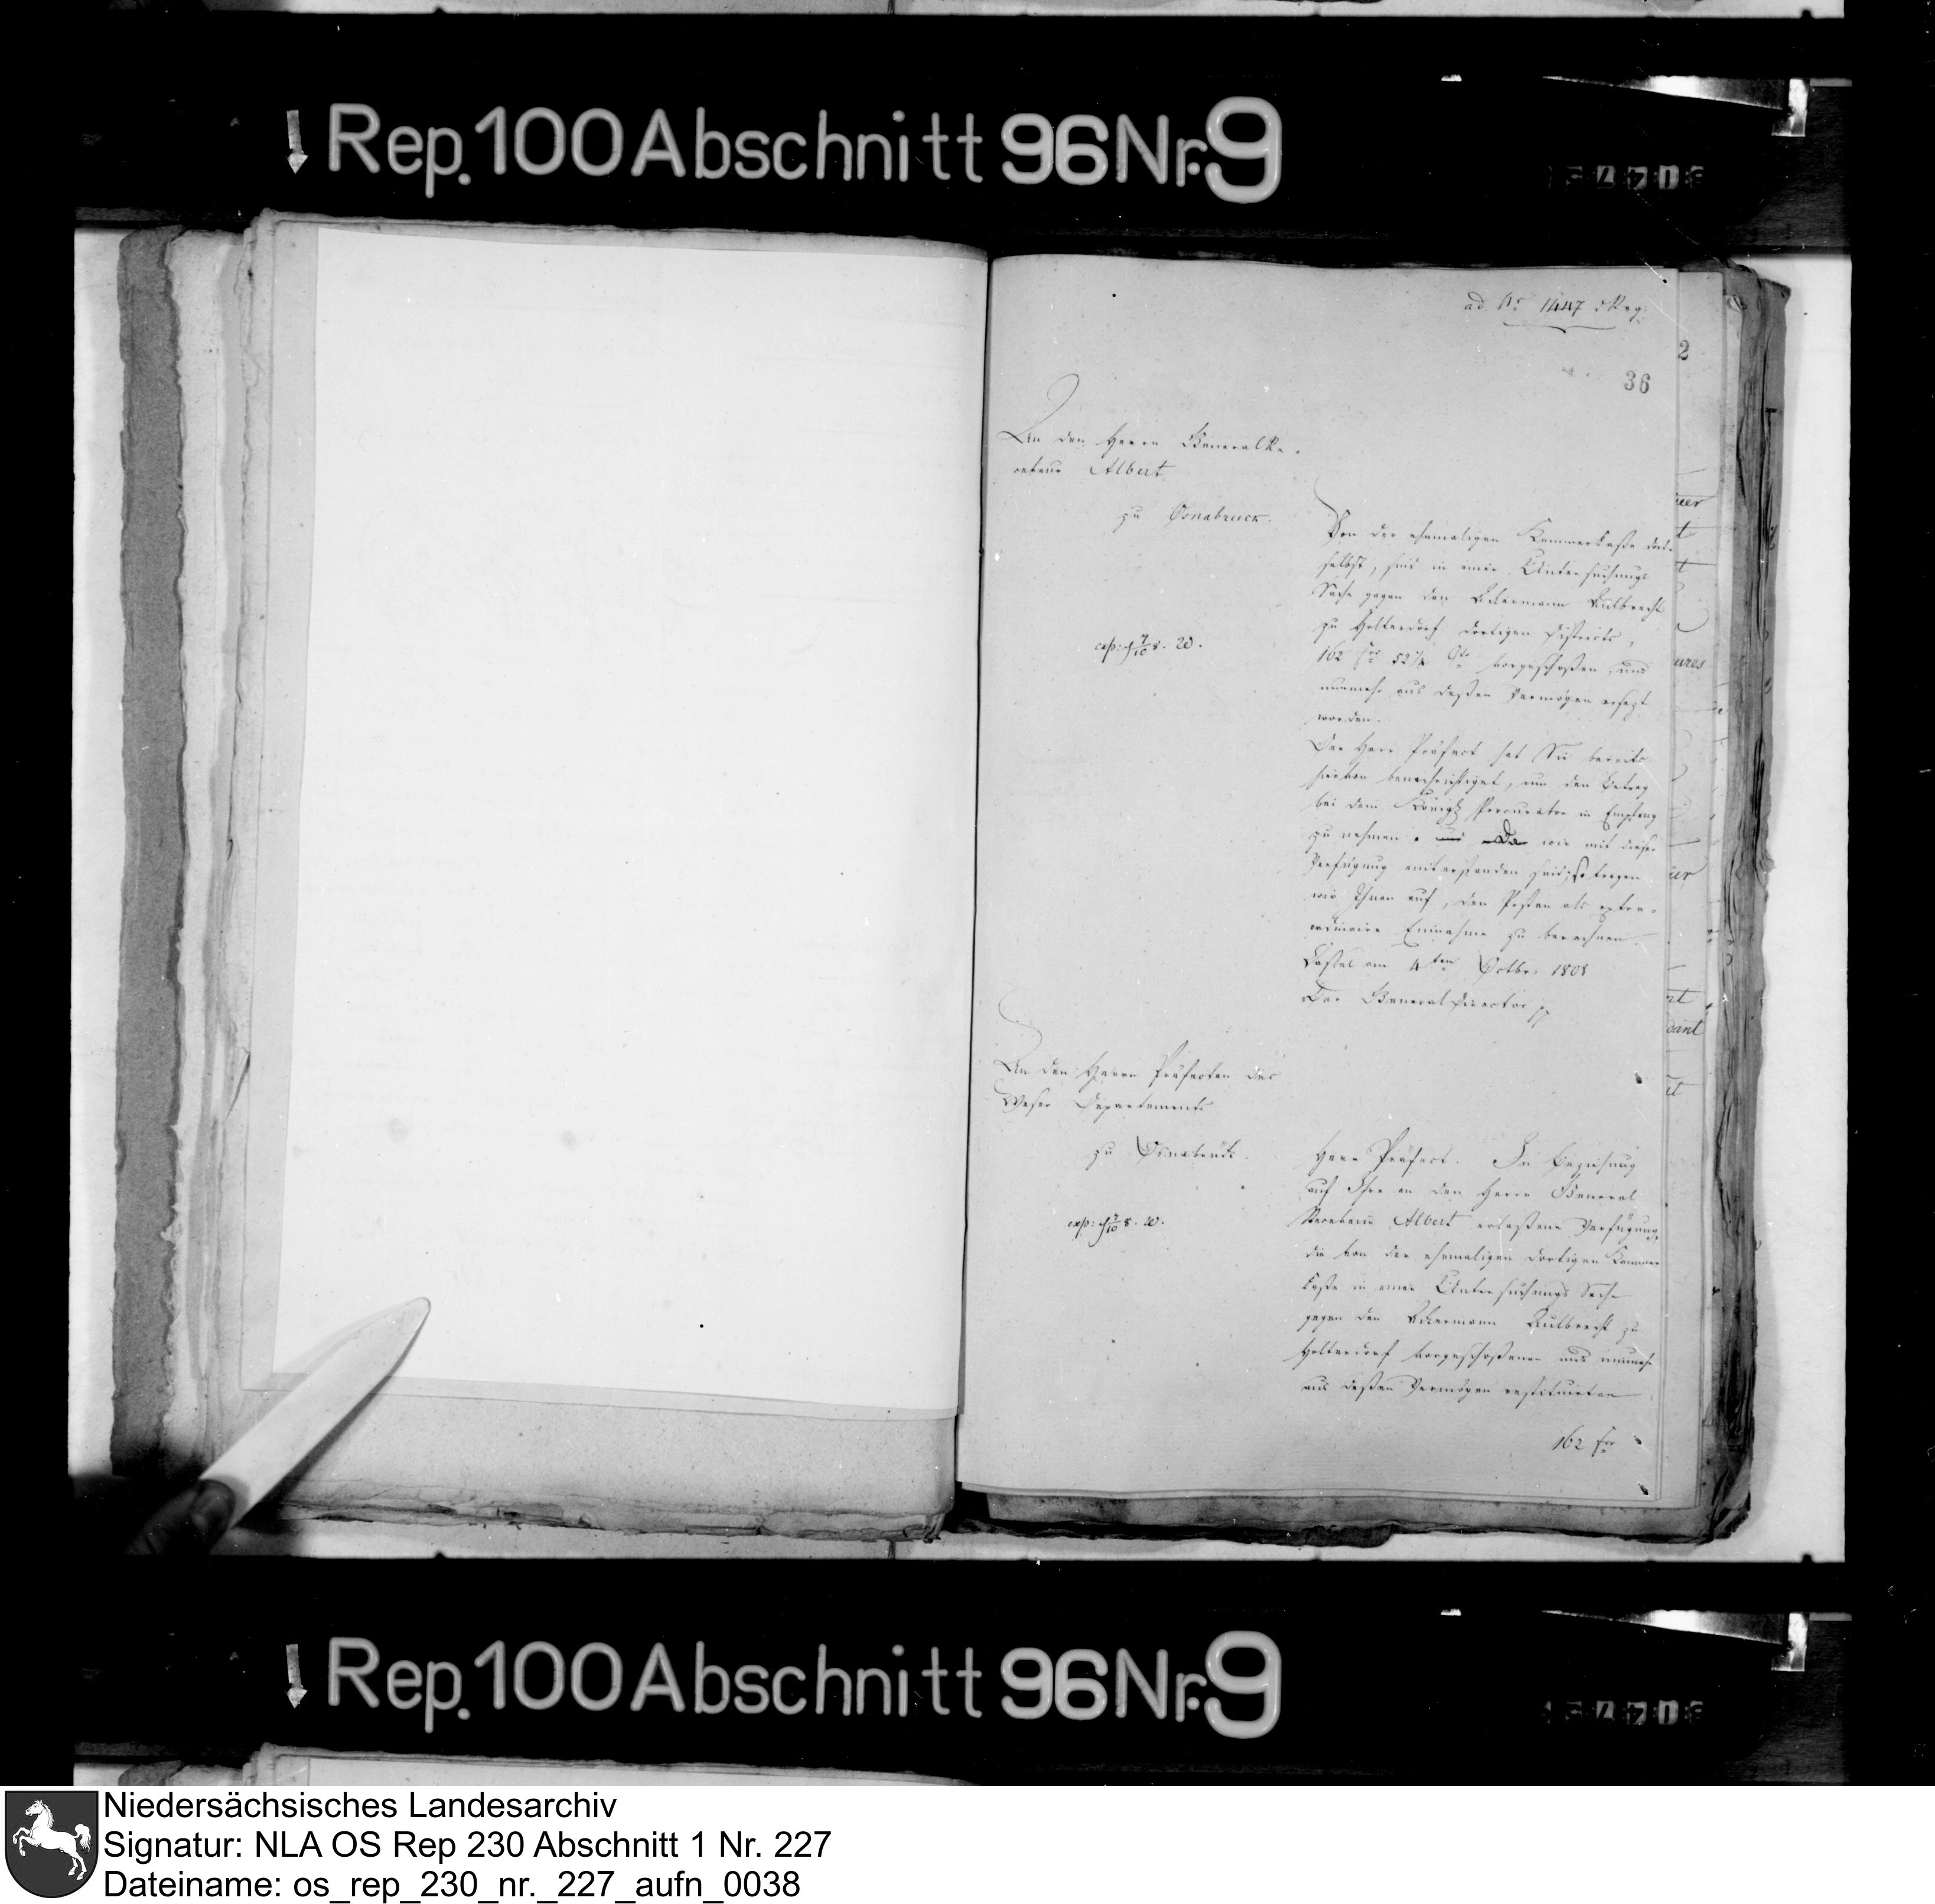 Rep. 100 Abschnitt 96 Nr. 9
ad Nr 1447 Reg:
2
36
An den Herrn General Re-
cetteur Albert
zu Osnabrück.
Von der ehemaligen Kammerkaße da-
selbst, sind in einer Untersuchungs
Sache gegen den Ackermann
zu Holterdorf dortigen Districts,
162 frs 52 1/2 vorgeschoßen, und
nunmehr aus deßen Vermögen ersezt
worden.
exp: 7/10 8. W.
Der Herr Präfect hat Sie bereits
hievon benachrichtiget, um den Betrag
bei dem Königl Procurator in Empfang
zu nehmen. und Da wir mit dieser
Verfügung einverstanden sind; so tragen
wir Ihnen auf, den Posten als extra-
ordinaire Einnahme zu berechnen.
Caßel am 4ten Octbr 1808
Der General Director
An den Herrn Präfecten des
Weser Departements
zu Osnabrück.
exp: 7/10 8. W.
Herr Präfect. In Beziehung
auf Ihre an den Herrn General
Receteur Albert erlaßene Verfügung,
die von der ehemaligen dortigen Kammer
Kaße in einer Untersuchungs Sache
gegen den Ackermann zu
Holterdorf vorgeschoßenen und nunmehr
aus deßen Vermögen restituirten
162 frs
Rep. 100 Abschnitt 96 Nr. 9
Niedersächsisches Landesarchiv
Signatur: NLA OS Rep 230 Abschnitt 1 Nr. 227
Dateiname: os_rep_230_nr._227_aufn_0038